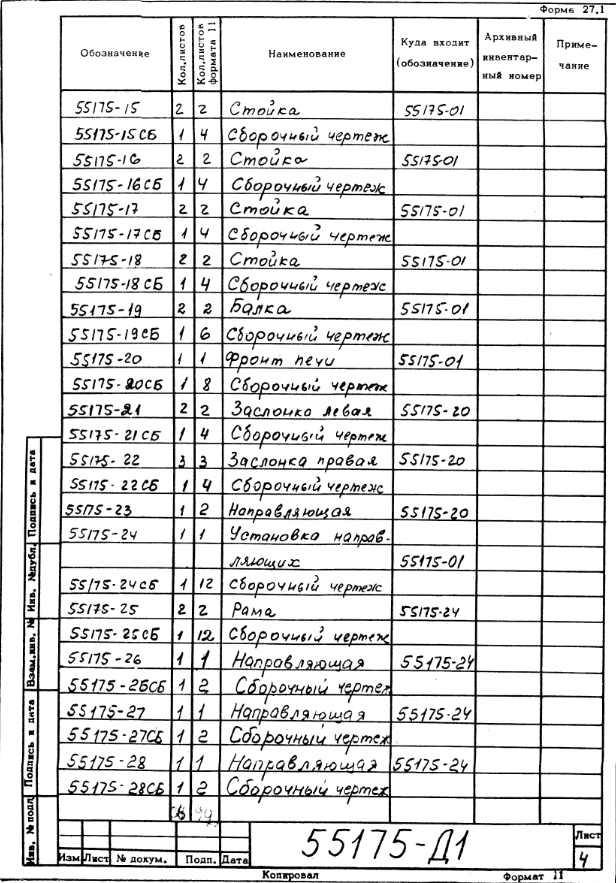 Форма 27.1
Обозначение Кол.листов Кол.листов формата 11 Наименование Куда входит (обозначение) Архивный инвентарный номер Примечание
55175-15 2 2 Стойка 55175-01
55175-15СБ 1 4 Сборочный чертеж
55175-16 2 2 Стойка 55175-01
55175-16СБ 1 4 Сборочный чертеж
55175-17 2 2 Стойка 55175-01
55175-17СБ 1 4 Сборочный чертеж
55175-18 2 2 Стойка 55175-01
55175-18СБ 1 4 Сборочный чертеж
55175-19 2 2 Балка 55175-01
55175-19СБ 1 6 Сборочный чертеж
55175-20 1 1 Фронт печи 55175-01
55175-20СБ 1 8 Сборочный чертеж
55175-21 2 2 Заслонка левая 55175-20
55175-21СБ 1 4 Сборочный чертеж
55175-22 3 3 Заслонка правая 55175-20
55175-22СБ 1 4 Сборочный чертеж
55175-23 1 2 Направляющая 55175-20
55175-24 1 1 Установка направ-
ляющих 55175-01
55175-24СБ 1 12 Сборочный чертеж
55175-25 2 2 Рама 55175-24
55175-25СБ 1 12 Сборочный чертеж
55175-26 1 1 Направляющая 55175-24
55175-26СБ 1 2 Сборочный чертеж
55175-27 1 1 Направляющая 55175-24
55175-27СБ 1 2 Сборочный чертеж
55175-28 1 1 Направляющая 55175-24
55175-28СБ 1 2 Сборочный чертеж
Подпись и дата
Инв. №дубл.
Взам.инв. №
Подпись и дата
Инв. № подл
55175-Д1
Лист
4
Изм Лист № докум. Подп. Дата
Копировал Формат 11